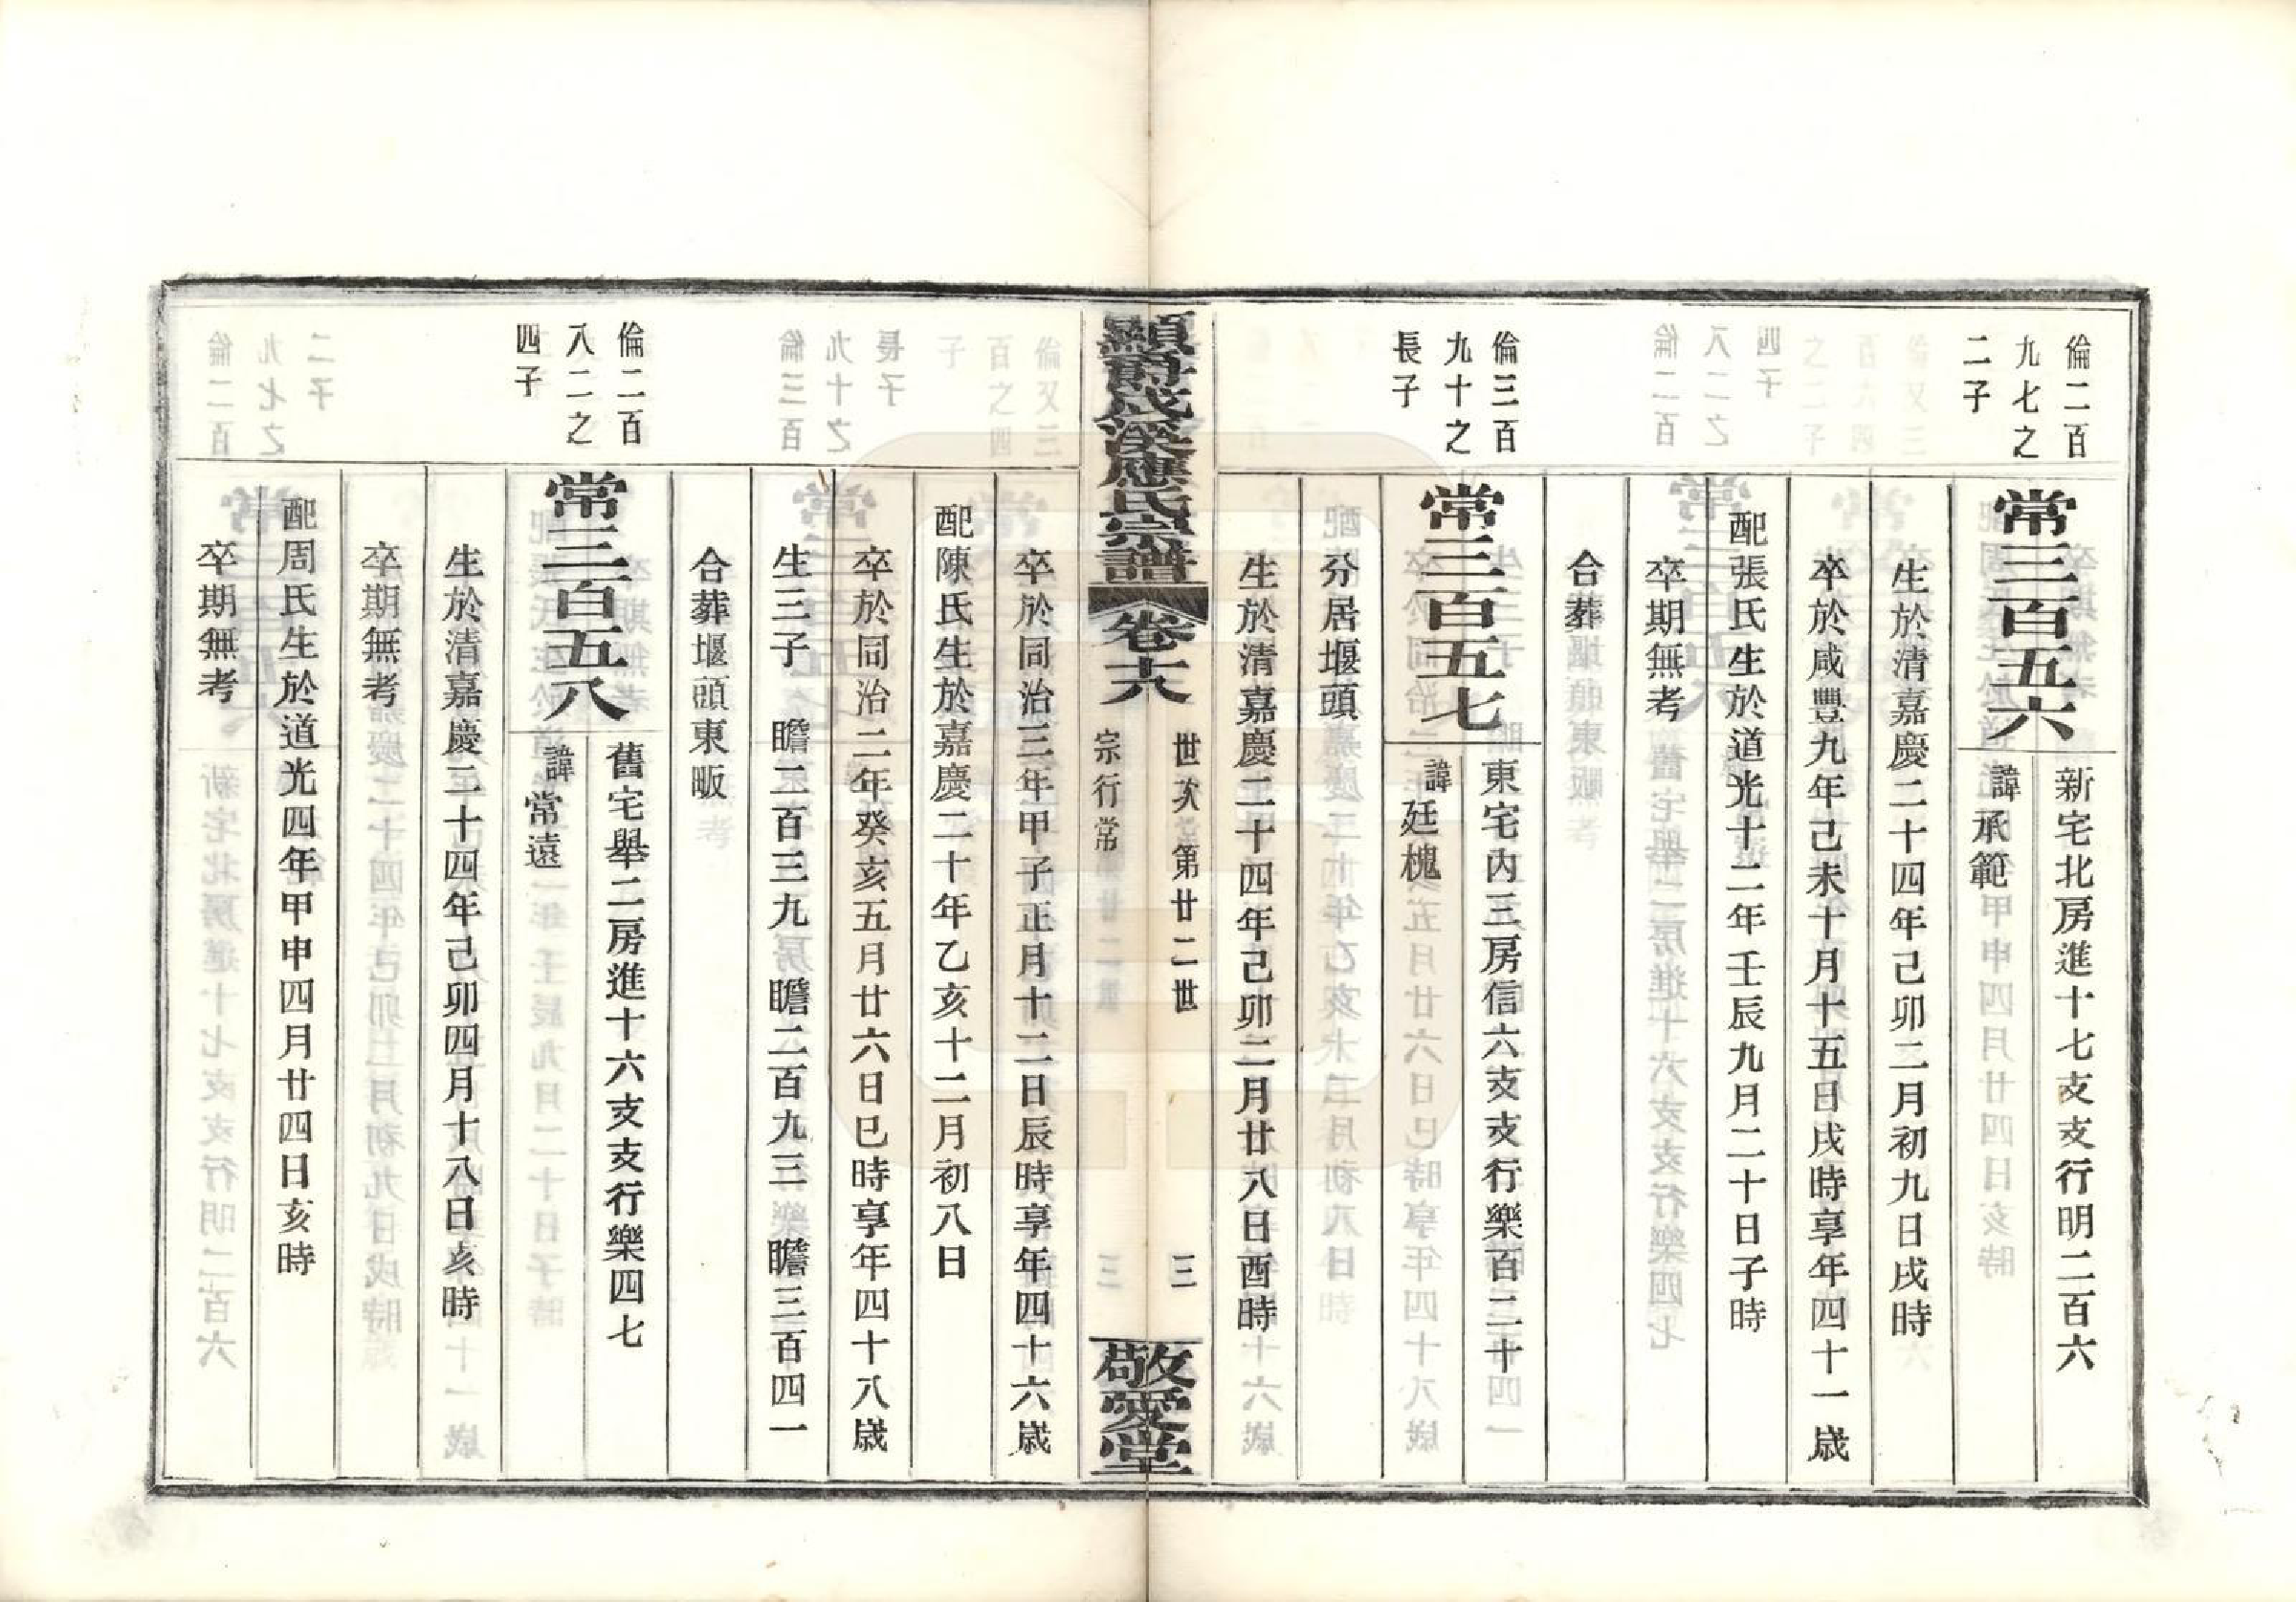 倫二百
九七之
二子
常三百五六
新宅北房進十七支支行明二百六
諱承範
生於清嘉慶二十四年己卯二月初九日戌時
卒於咸豐九年己未十月十五日戌時享年四十一歲
配張氏生於道光十二年壬辰九月二十日子時
卒期無考
合葬
倫三百
九十之
長子
常三百五七
東宅內三房信六支支行樂百二十
諱廷槐
分居堰頭
生於清嘉慶二十四年己卯二月廿八日酉時
顯爵武溪應氏宗譜 卷十六
世次第廿二世 三
宗行常
敬愛堂
卒於同治三年甲子正月十二日辰時享年四十六歲
配陳氏生於嘉慶二十年乙亥十二月初八日
卒於同治二年癸亥五月廿六日巳時享年四十八歲
生三子 瞻二百三九 瞻二百九三 瞻三百四一
合葬堰頭東畈
倫二百
八二之
四子
常三百五八
舊宅舉二房進十六支支行樂四七
諱常遠
生於清嘉慶二十四年己卯四月十八日亥時
卒期無考
配周氏生於道光四年甲申四月廿四日亥時
卒期無考